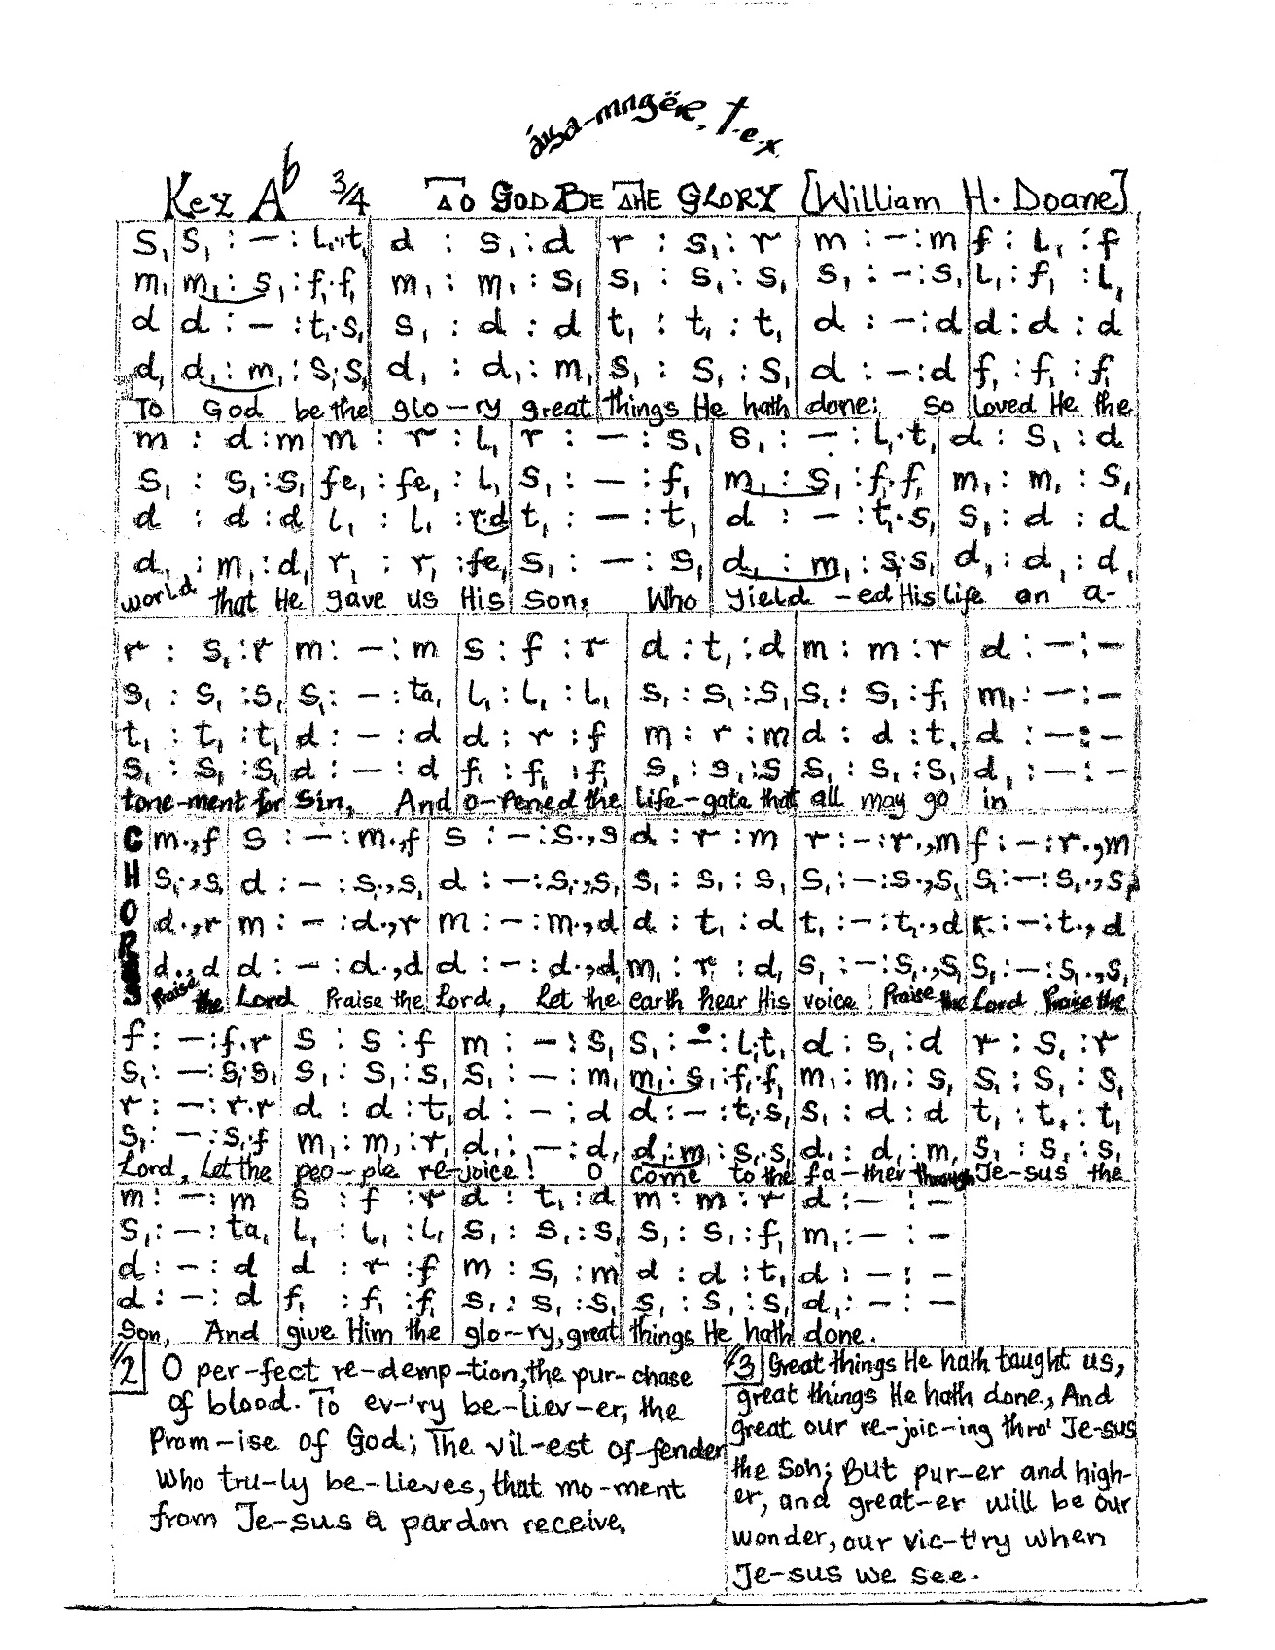 Key A♭ 3/4 TO GOD BE THE GLORY [William H. Doane]
S₁|S₁ : — : L₁.t₁|d : S₁ : d|r : S₁ : r|m : — : m|f : L₁ : f
m₁|m₁ : S₁ : f₁.f₁|m₁ : m₁ : S₁|S₁ : S₁ : S₁|S₁ : — : S₁|L₁ : f₁ : L₁
d|d : — : t₁.S₁|S₁ : d : d|t₁ : t₁ : t₁|d : — : d|d : d : d
d₁|d₁ : m₁ : S₁.S₁|d₁ : d₁ : m₁|S₁ : S₁ : S₁|d : — : d|f₁ : f₁ : f₁
To God be the glo-ry great things He hath done; So loved He the
m : d : m|m : r : L₁|r : — : S₁|S₁ : — : L₁.t₁|d : S₁ : d
S₁ : S₁ : S₁|fe₁ : fe₁ : L₁|S₁ : — : f₁|m₁ : S₁ : f₁.f₁|m₁ : m₁ : S₁
d : d : d|L₁ : L₁ : r.d|t₁ : — : t₁|d : — : t₁.S₁|S₁ : d : d
d₁ : m₁ : d₁|r₁ : r₁ : fe₁|S₁ : — : S₁|d₁ : m₁ : S₁.S₁|d₁ : d₁ : d₁
world that He gave us His Son, Who yield -ed His life an a-
r : S₁ : r|m : — : m|S : f : r|d : t₁ : d|m : m : r|d : — : —
S₁ : S₁ : S₁|S₁ : — : ta₁|L₁ : L₁ : L₁|S₁ : S₁ : S₁|S₁ : S₁ : f₁|m₁ : — : —
t₁ : t₁ : t₁|d : — : d|d : r : f|m : r : m|d : d : t₁|d : — : —
S₁ : S₁ : S₁|d : — : d|f₁ : f₁ : f₁|S₁ : S₁ : S|S₁ : S₁ : S₁|d₁ : — : —
tone-ment for Sin, And o-pened the life-gate that all may go in
m.,f|S : — : m.,f|S : — : S.,S|d : r : m|r : — : r.,m|f : — : r.,m
S₁.,S₁|d : — : S₁.,S₁|d : — : S₁.,S₁|S₁ : S₁ : S₁|S₁ : — : S.,S₁|S₁ : — : S₁.,S₁
d.,r|m : — : d.,r|m : — : m.,d|d : t₁ : d|t₁ : — : t₁.,d|r : — : t.,d
d.,d|d : — : d.,d|d : — : d.,d|m₁ : r : d₁|S₁ : — : S₁.,S₁|S₁ : — : S₁.,S₁
Praise the Lord Praise the Lord, Let the earth hear His voice! Praise the Lord Praise the
f : — : f.r|S : S : f|m : — : S₁|S₁ : — : L₁.t₁|d : S₁ : d|r : S₁ : r
S₁ : — : S₁.S₁|S₁ : S₁ : S₁|S₁ : — : m₁|m₁ : S₁ : f₁.f₁|m₁ : m₁ : S₁|S₁ : S₁ : S₁
r : — : r.r|d : d : t₁|d : — : d|d : — : t₁.S₁|S₁ : d : d|t₁ : t₁ : t₁
S₁ : — : S₁.f|m₁ : m₁ : r₁|d₁ : — : d₁|d₁ : m₁ : S₁.S₁|d₁ : d₁ : m₁|S₁ : S₁ : S₁
Lord, Let the peo-ple re-joice! O come to the fa-ther through Je-sus the
m : — : m|S : f : r|d : t₁ : d|m : m : r|d : — : —
S₁ : — : ta₁|L₁ : L₁ : L₁|S₁ : S₁ : S₁|S₁ : S₁ : f₁|m₁ : — : —
d : — : d|d : r : f|m : S₁ : m|d : d : t₁|d : — : —
d : — : d|f₁ : f₁ : f₁|S₁ : S₁ : S₁|S₁ : S₁ : S₁|d₁ : — : —
Son, And give Him the glo-ry, great things He hath done.
2 O per-fect re-demp-tion, the pur-chase
of blood. To ev-'ry be-liev-er, the
Prom-ise of God; The vil-est of-fender
Who tru-ly be-lieves, that mo-ment
from Je-sus a pardon receive,
3 Great things He hath taught us,
great things He hath done, And
great our re-joic-ing thro' Je-sus
the Son; But pur-er and high-
er, and great-er will be our
wonder, our vic-t'ry when
Je-sus we see.